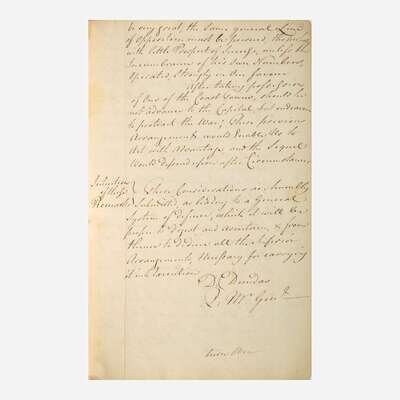 be very great, the same general Line
of Opposition must be pursued, tho'
with little Prospect of Success, unless the
Incumbrance of his own Numbers,
Operated, Strongly in Our favour
After taking possession
of One of the Coast Towns, should he
not advance to the Capital, but endeavour
to protract the War; These previous
Arrangements would Enable Us to
Act with Advantage and the Sequel
Would depend upon after Circumstances
Intention
of these
Remarks
These Considerations are humbly
Submitted, as leading to a General
System of defence, which it will be
proper to digest and ascertain, & from
thence to deduce all the Inferior
Arrangements, Necessary for carrying
it into Execution
Dd Dundas
Q. Mr Genl
turn Over